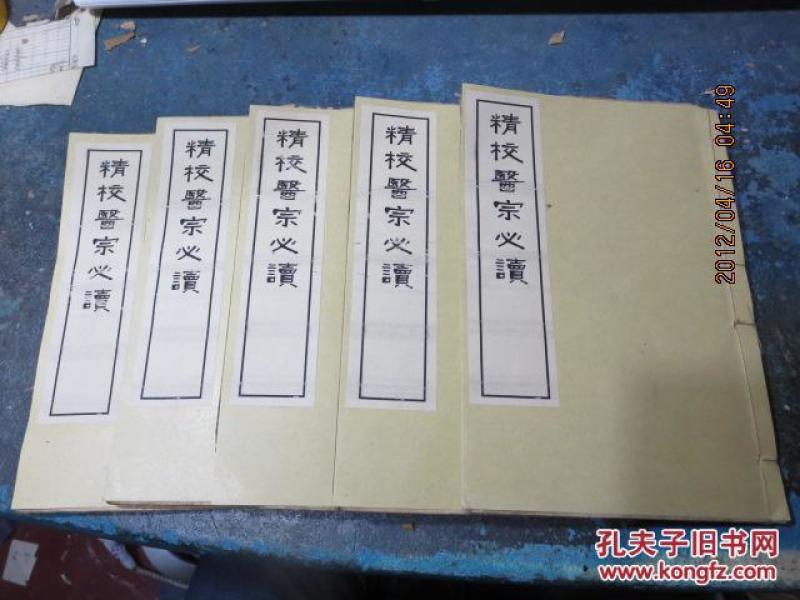 精校醫宗必讀
精校醫宗必讀
精校醫宗必讀
精校醫宗必讀
精校醫宗必讀
2012/04/16 04:49
孔夫子旧书网
www.kongfz.com